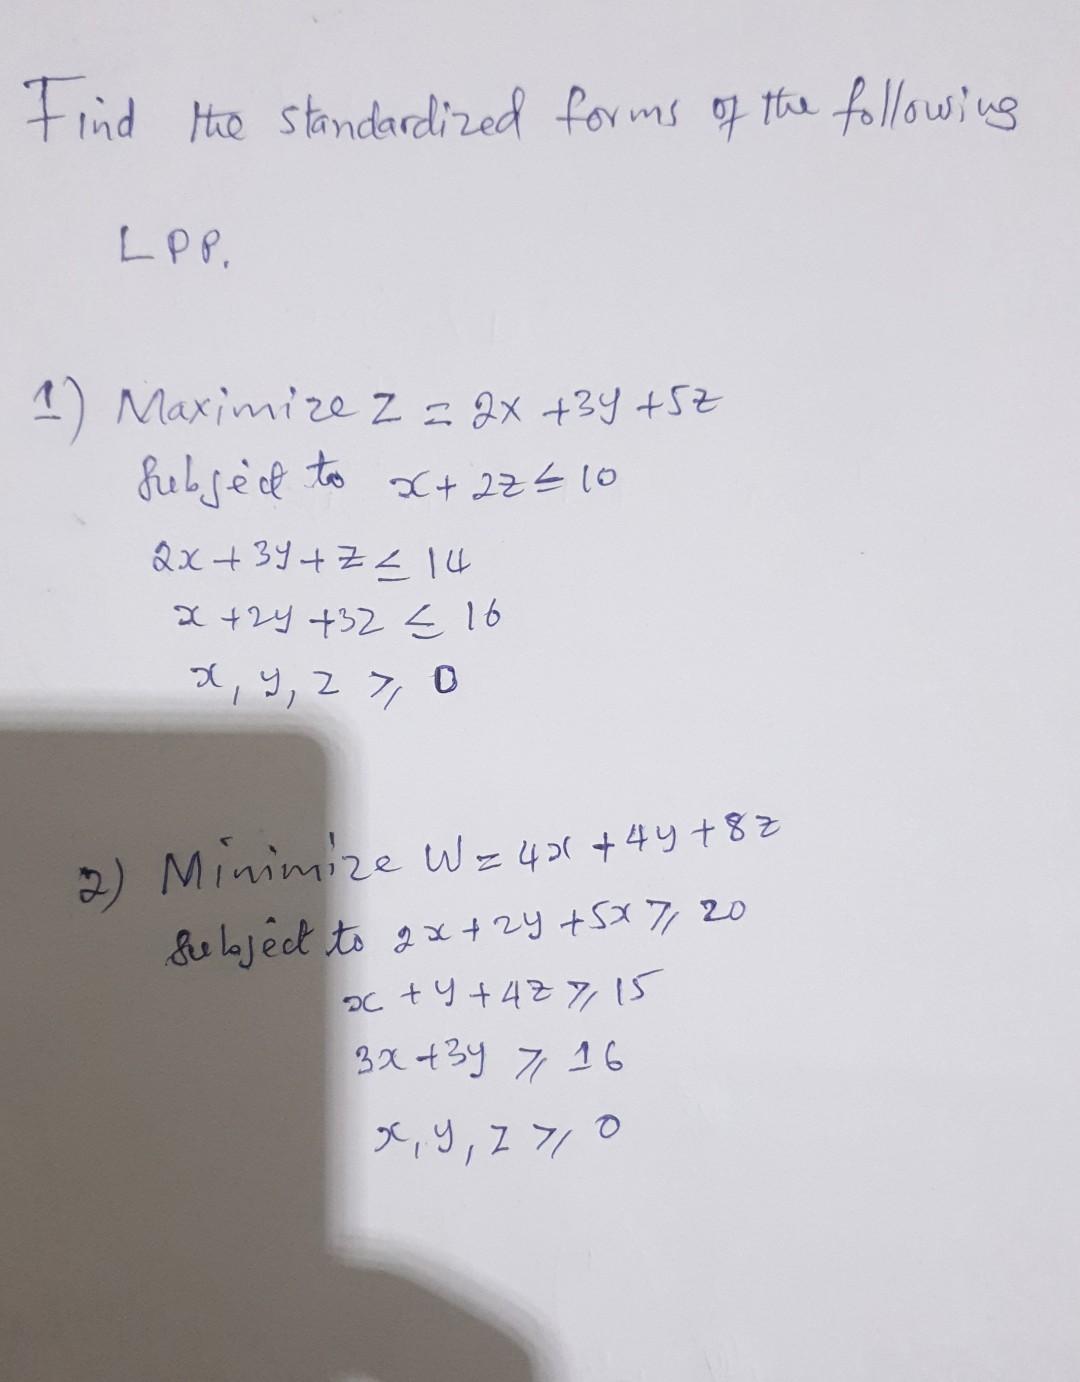 Find the standardized forms of the following
LPP.
1) Maximize Z = 2x +3y +5z
Subject to x + 2z ≤ 10
2x + 3y + z ≤ 14
x + 2y + 3z ≤ 16
x, y, z ≥ 0
2) Minimize W = 4x + 4y + 8z
Subject to 2x + 2y + 5x ≥ 20
x + y + 4z ≥ 15
3x + 3y ≥ 16
x, y, z ≥ 0